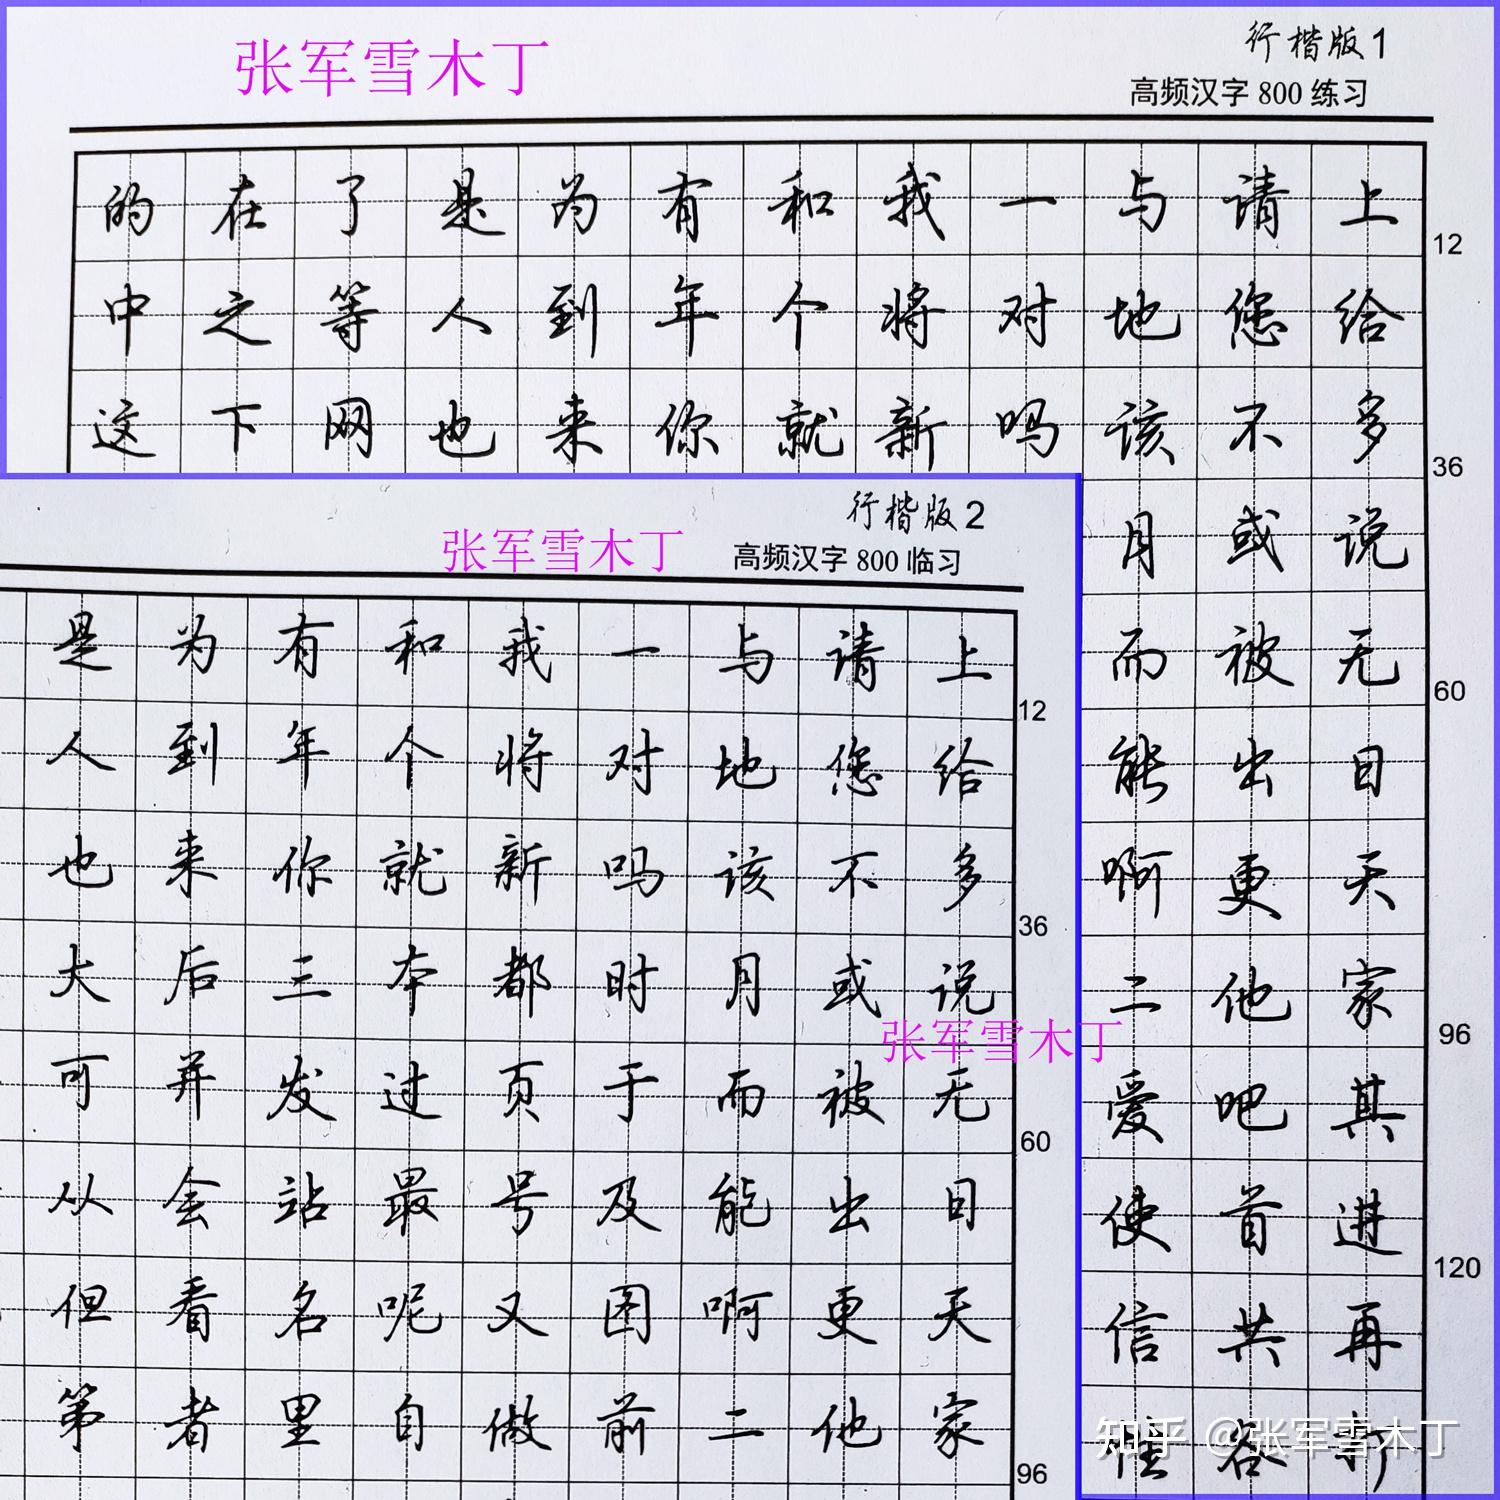 张军雪木丁
行楷版1
高频汉字 800 练习
的在了是为有和我一与请上
12
中之等人到年个将对地您给
这下网也来你就新吗该不多
36
月或说
而被无
60
能出日
啊更天
二他家
96
爱吧其
使首进
120
信共再
行楷版2
张军雪木丁
高频汉字 800 临习
是为有和我一与请上
12
人到年个将对地您给
也来你就新吗该不多
36
大后三本都时月或说
张军雪木丁
可并发过页于而被无
60
从会站最号及能出日
但看名呢又图啊更天
第者里自做前二他家
96
知乎 @张军雪木丁